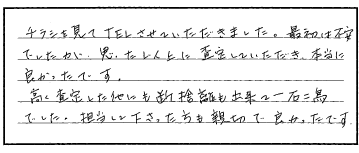 チラシを見てTELさせていただきました。最初は不安
でしたが、思った以上に査定していただき、本当に
良かったです。
高く査定した他にも断捨離も出来て一石二鳥
でした。担当して下さった方も親切で良かったです